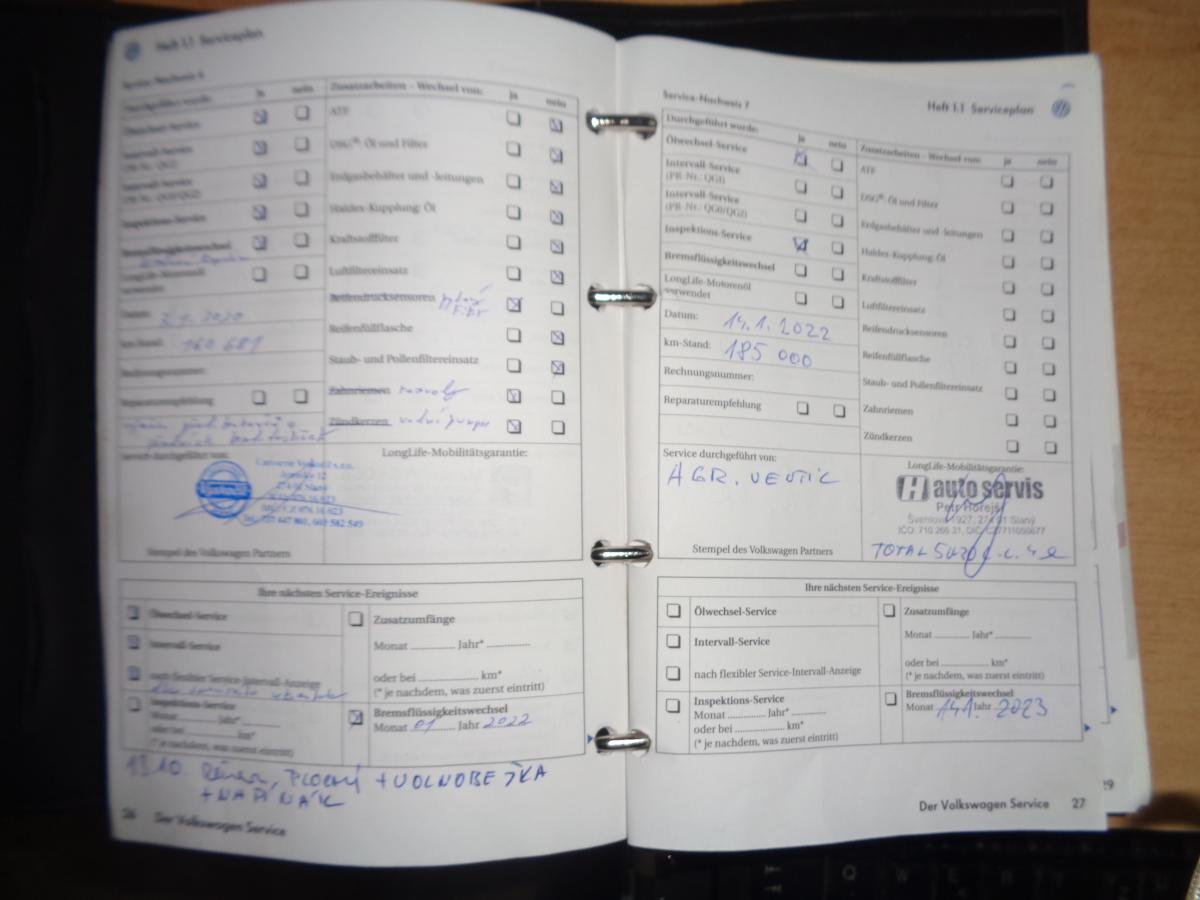 Heft 1.1 Serviceplan
Service-Nachweis 6
Durchgeführt wurde: ja nein
Ölwechsel-Service
Intervall-Service
(PR-Nr.: QG1)
Intervall-Service
(PR-Nr.: QG0/QG2)
Inspektions-Service
Bremsflüssigkeitswechsel
LongLife-Motorenöl
verwendet
Datum: 2020
km-Stand: 160 681
Rechnungsnummer:
Reparaturempfehlung
Service durchgeführt von:
Stempel des Volkswagen Partners
Zusatzarbeiten – Wechsel von: ja nein
ATF
DSG®: Öl und Filter
Erdgasbehälter und -leitungen
Haldex-Kupplung: Öl
Kraftstofffilter
Luftfiltereinsatz
Reifendrucksensoren
Reifenfüllflasche
Staub- und Pollenfiltereinsatz
Zahnriemen rozvody
Zündkerzen vodní pumpa
LongLife-Mobilitätsgarantie:
Ihre nächsten Service-Ereignisse
Ölwechsel-Service
Intervall-Service
nach flexibler Service-Intervall-Anzeige
Inspektions-Service
Monat Jahr*
oder bei km*
(* je nachdem, was zuerst eintritt)
Zusatzumfänge
Monat Jahr*
oder bei km*
(* je nachdem, was zuerst eintritt)
Bremsflüssigkeitswechsel
Monat 01 Jahr 2022
+ VOLNOBĚŽKA
+ NAPÍNÁK
26 Der Volkswagen Service
Service-Nachweis 7
Heft 1.1 Serviceplan
Durchgeführt wurde: ja nein
Ölwechsel-Service
Intervall-Service
(PR-Nr.: QG1)
Intervall-Service
(PR-Nr.: QG0/QG2)
Inspektions-Service
Bremsflüssigkeitswechsel
LongLife-Motorenöl
verwendet
Datum: 14.1.2022
km-Stand: 185 000
Rechnungsnummer:
Reparaturempfehlung
Service durchgeführt von:
AGR. VENTIL
Stempel des Volkswagen Partners
Zusatzarbeiten – Wechsel von: ja nein
ATF
DSG®: Öl und Filter
Erdgasbehälter und -leitungen
Haldex-Kupplung: Öl
Kraftstofffilter
Luftfiltereinsatz
Reifendrucksensoren
Reifenfüllflasche
Staub- und Pollenfiltereinsatz
Zahnriemen
Zündkerzen
LongLife-Mobilitätsgarantie:
H auto servis
Petr Hořejš
1927, 274 01 Slaný
TOTAL
Ihre nächsten Service-Ereignisse
Ölwechsel-Service
Intervall-Service
nach flexibler Service-Intervall-Anzeige
Inspektions-Service
Monat Jahr*
oder bei km*
(* je nachdem, was zuerst eintritt)
Zusatzumfänge
Monat Jahr*
oder bei km*
(* je nachdem, was zuerst eintritt)
Bremsflüssigkeitswechsel
Monat 14.1. Jahr 2023
Der Volkswagen Service 27
29